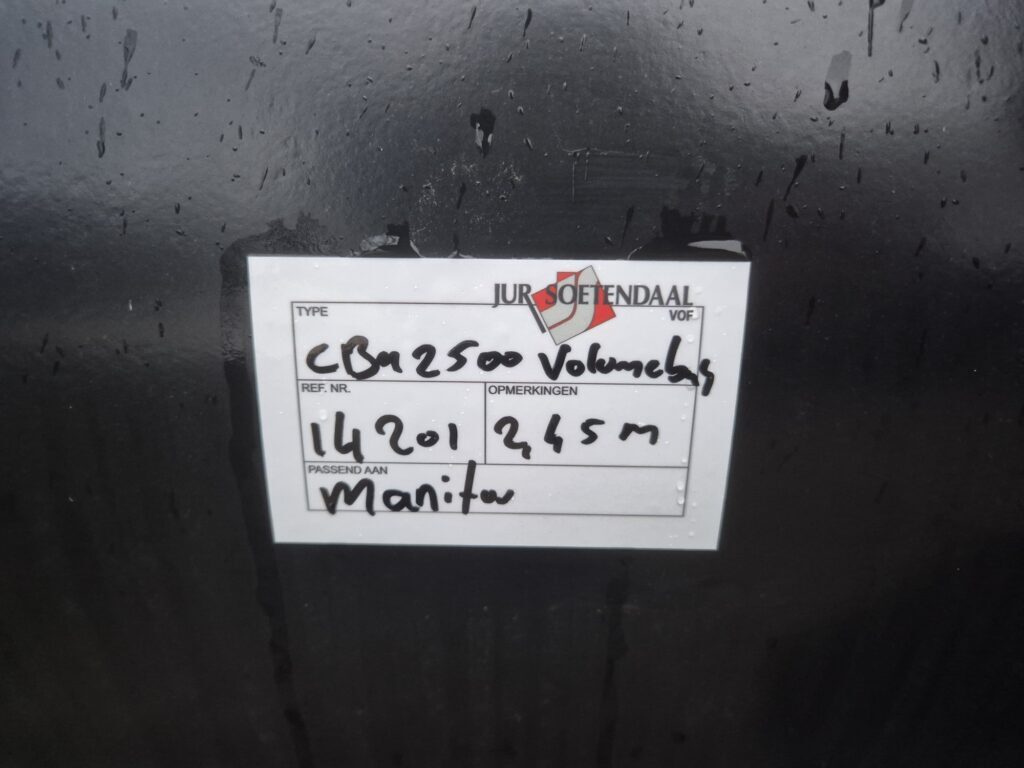 JUR SOETENDAAL
VOF
TYPE
CBM 2500 Volumebak
REF. NR.
14201
OPMERKINGEN
2,45 m
PASSEND AAN
Manitou